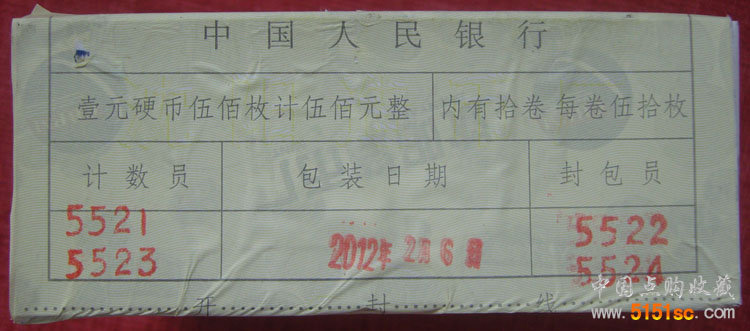 中国人民银行
壹元硬币伍佰枚计伍佰元整 内有拾卷 每卷伍拾枚
计数员 包装日期 封包员
5521 5522
5523 2012年2月6日 5524
开封线
中国点购收藏
www.5151sc.com